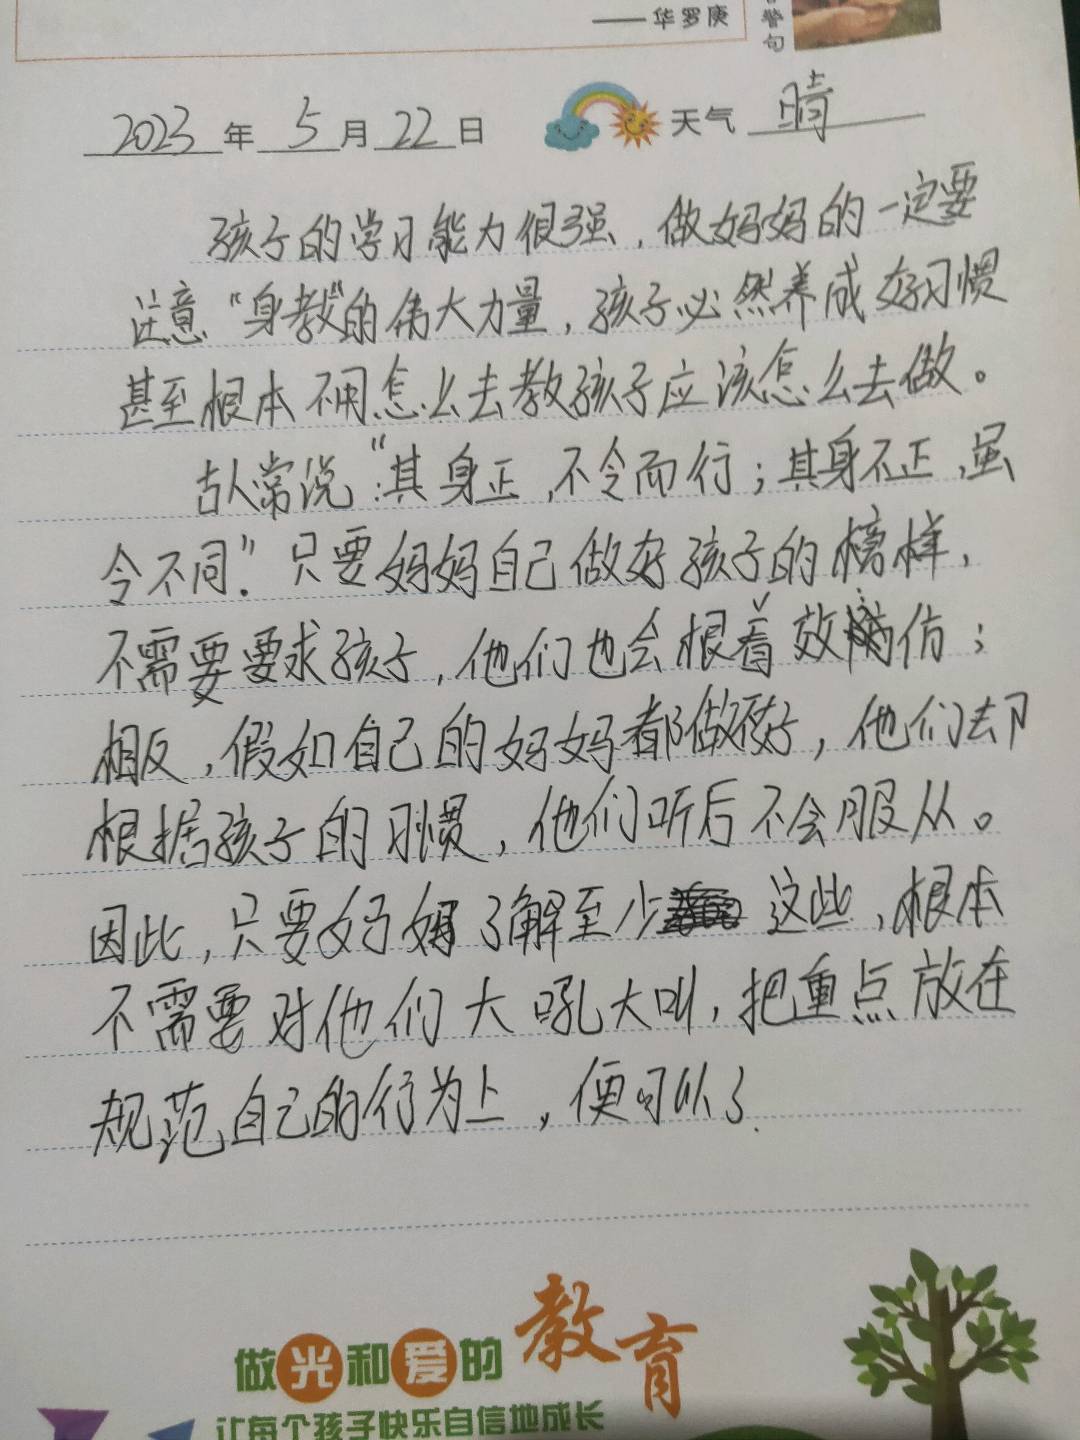 ——华罗庚
警
句
2023年5月22日 天气 晴
孩子的学习能力很强，做妈妈的一定要
注意“身教”的伟大力量，孩子必然养成好习惯
甚至根本不用怎么去教孩子应该怎么去做。
古人常说：“其身正，不令而行；其身不正，虽
令不同.”只要妈妈自己做好孩子的榜样，
不需要要求孩子，他们也会根着效仿；
相反，假如自己的妈妈都做不好，他们却
根据孩子的习惯，他们听后不会服从。
因此，只要妈妈了解至少 这些，根本
不需要对他们大吼大叫，把重点放在
规范自己的行为上，便可以了.
做光和爱的教育
让每个孩子快乐自信地成长